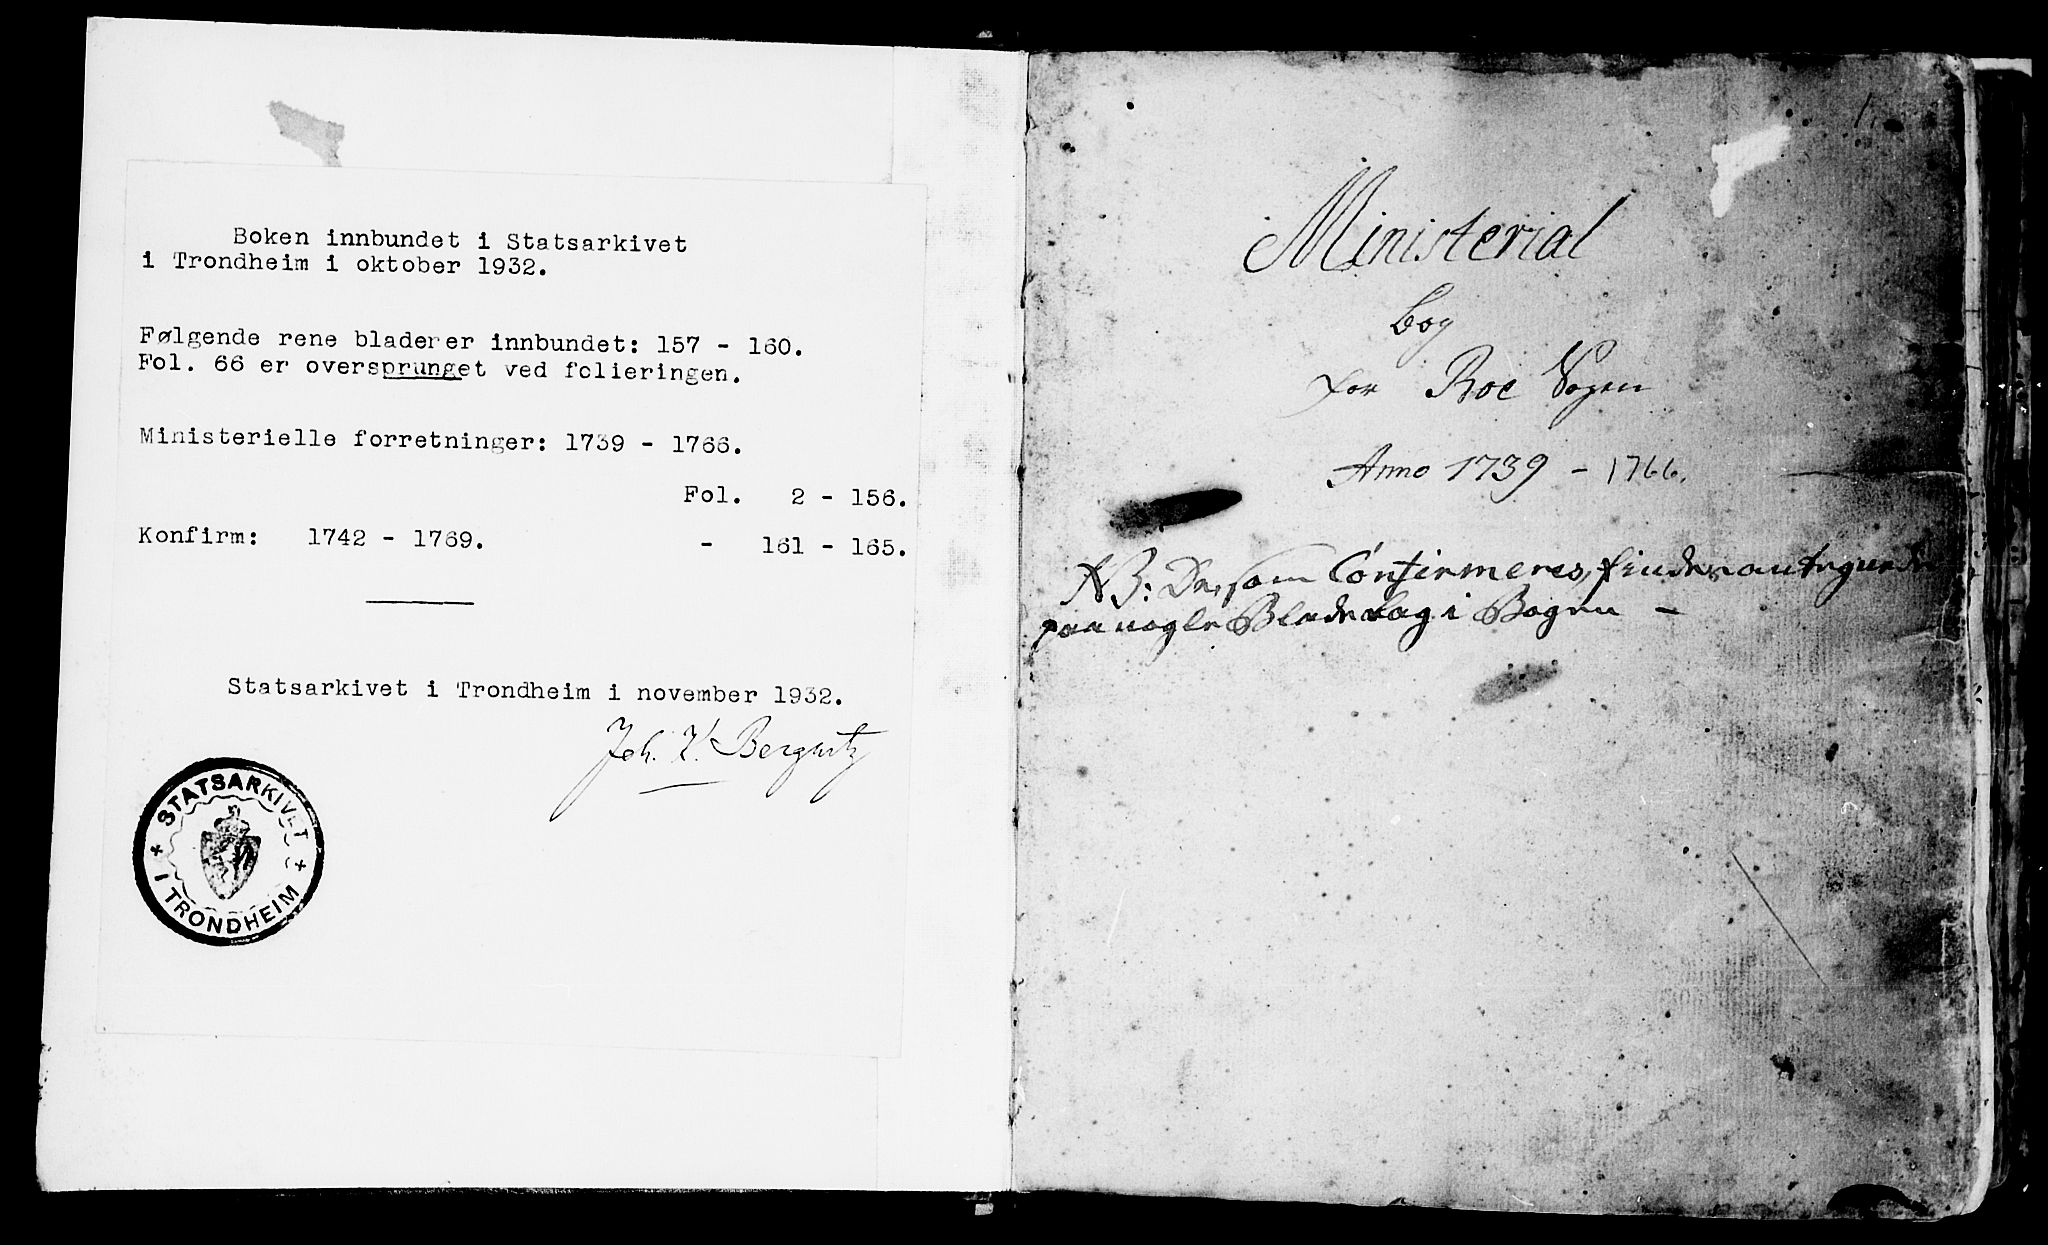 Boken innbundet i Statsarkivet
i Trondheim i oktober 1932.
Følgende rene blader er innbundet: 157 - 160.
Fol. 66 er oversprunget ved folieringen.
Ministerielle forretninger: 1739 - 1766.
Fol. 2 - 156.
Konfirm: 1742 - 1769. - 161 - 165.
Statsarkivet i Trondheim i november 1932.
Joh.
STATSARKIVET
I TRONDHEIM
1.
Ministerial
bog
for Roe Sogen
Anno 1739 - 1766.
NB: De, som Confirmeres, findes antegnede
paa nogle Blade bag i Bogen -